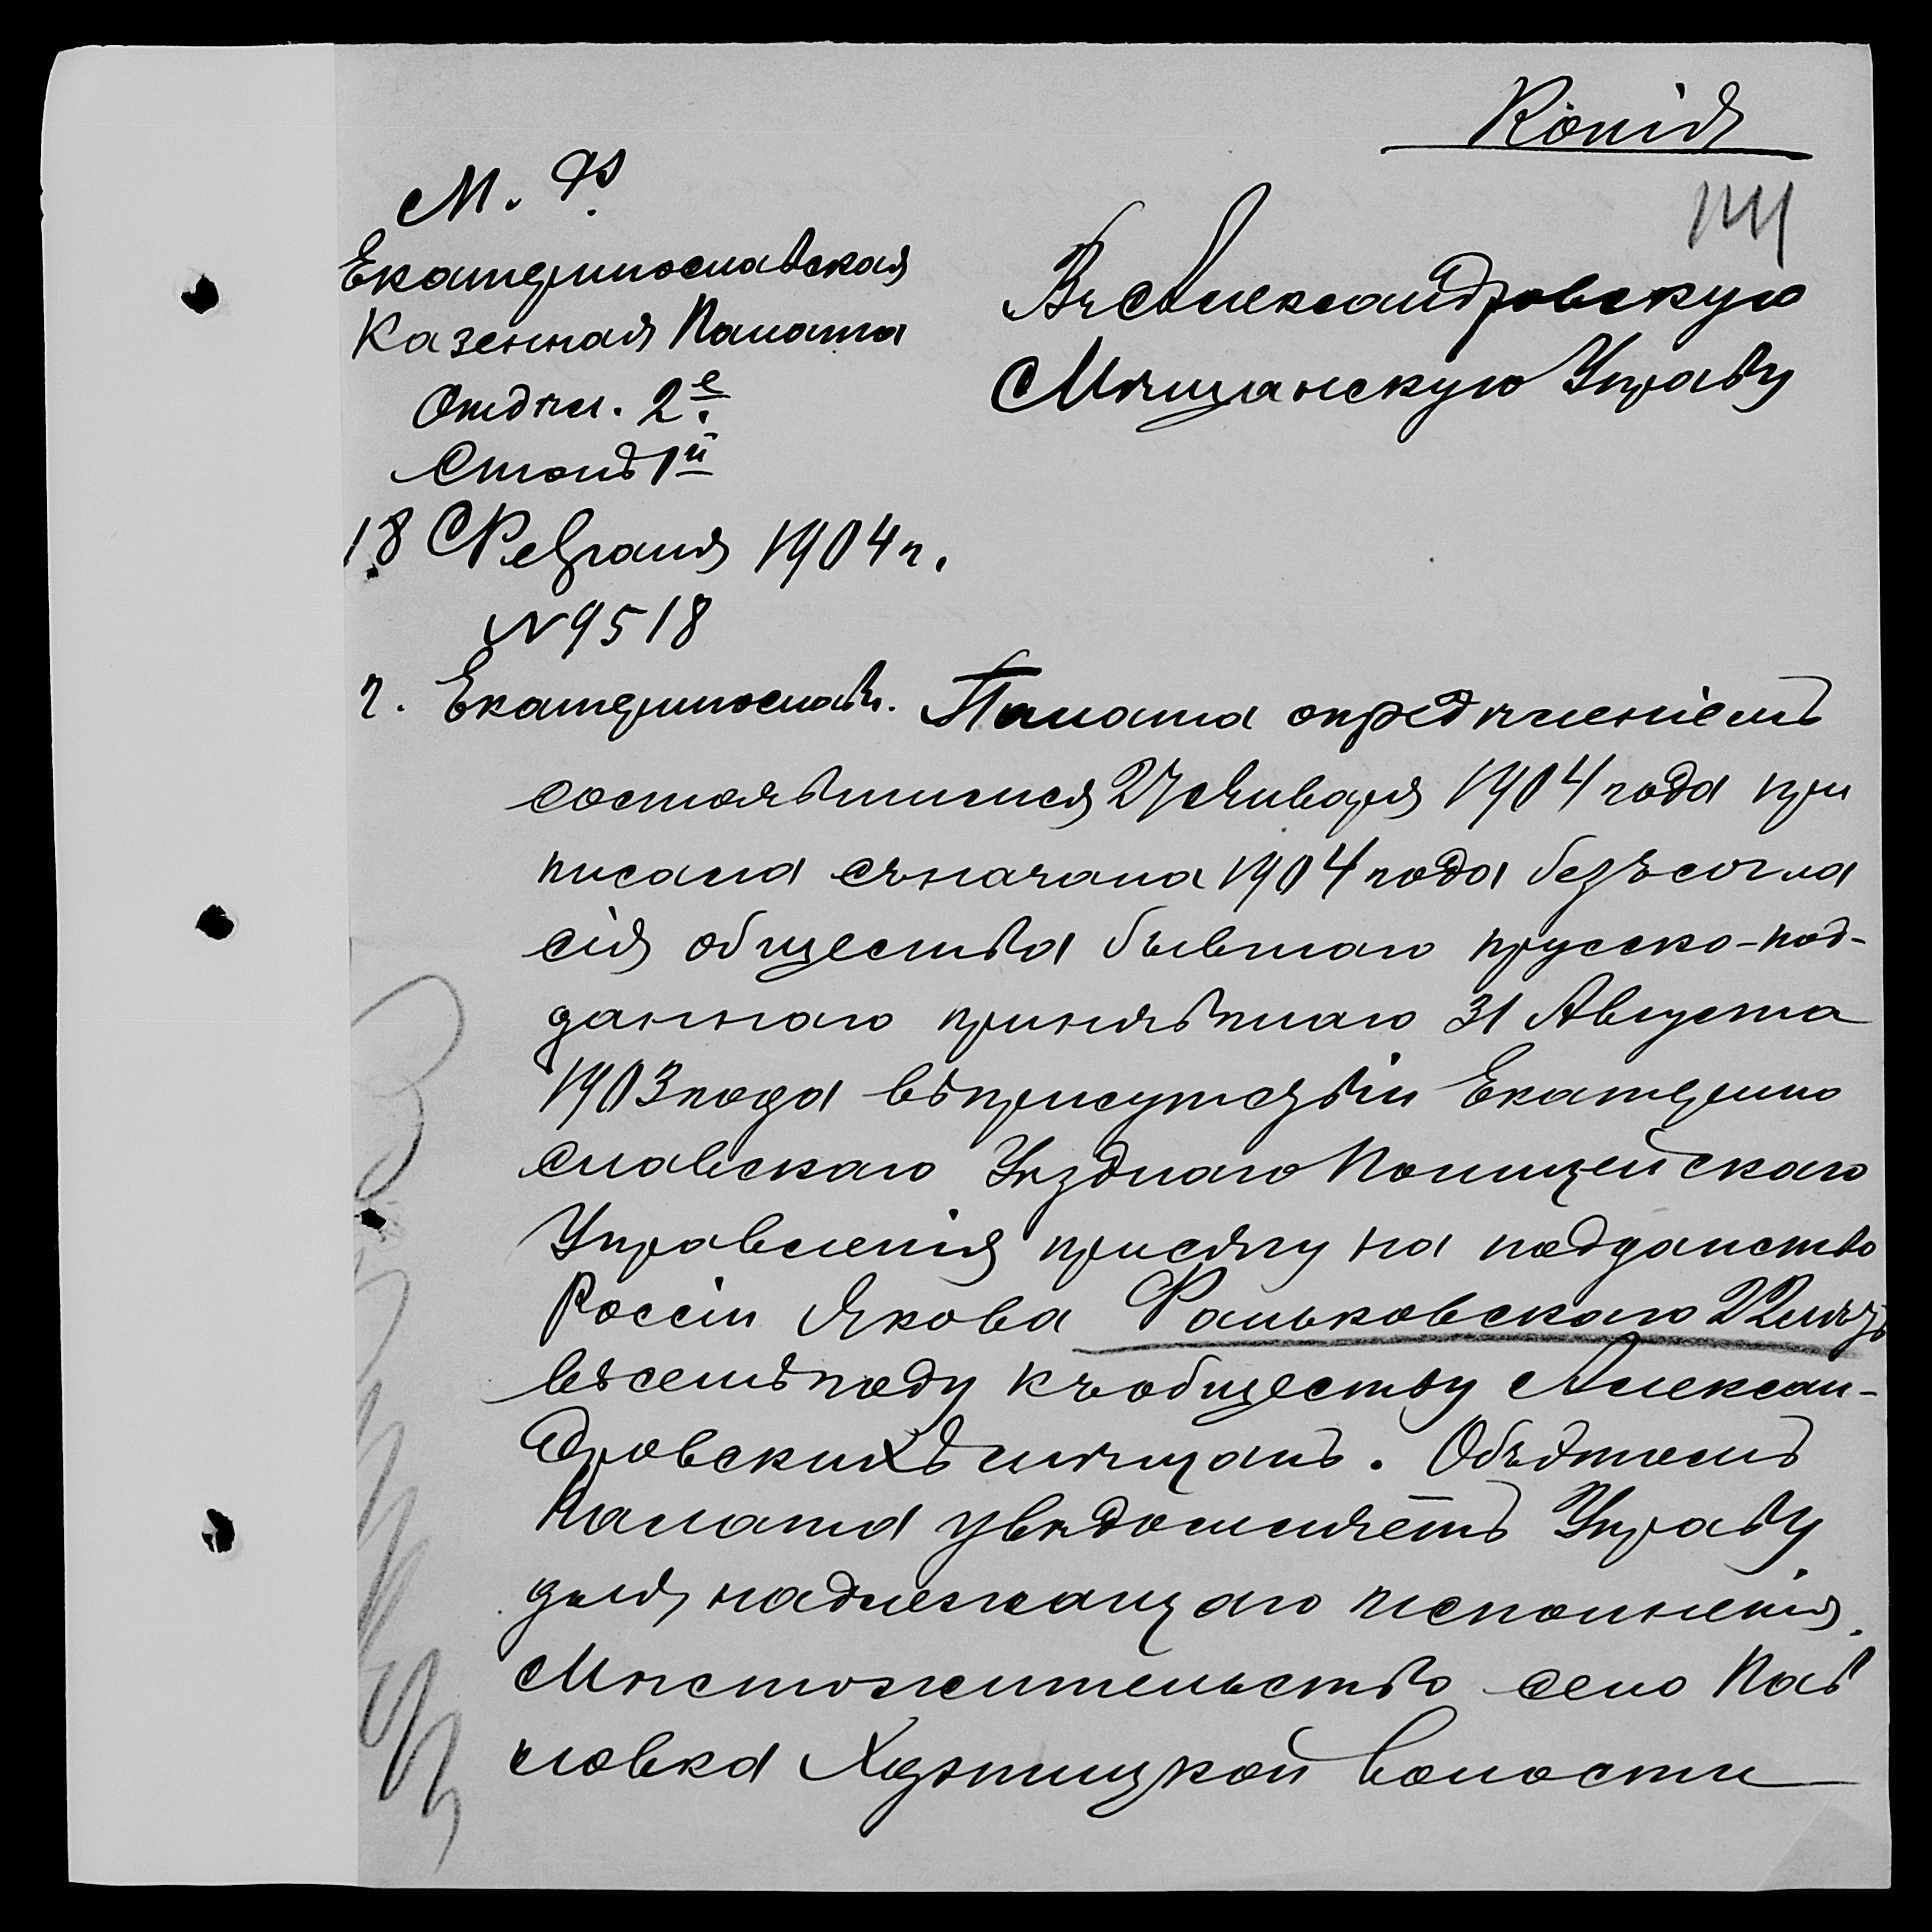 Копія
М. Ф.
Екатеринославская
Казенная Палата
Отдѣл. 2е
Столъ 1й
18 Февраля 1904 г.
№ 9518
г. Екатеринославъ.
Въ Александровскую
Мѣщанскую Управу
Палата опредѣленіемъ
состоявшимися 27 Января 1904 года при
писала съ начала 1904 года безъ согла
сія общества бывшаго прусско-под-
даннаго принявшаго 31 Августа
1903 года въ присутствіи Екатерино
славскаго Уѣзднаго Полицейскаго
Управленія присягу на подданство
Россіи Якова Фальковскаго 22 лѣтъ
въ семъ году къ обществу Алексан-
дровскихъ мѣщанъ. Объ этомъ
Палата увѣдомляетъ Управу
для надлежащаго исполненія.
Мѣстожительство село Пав
ловка Хортицкой волости